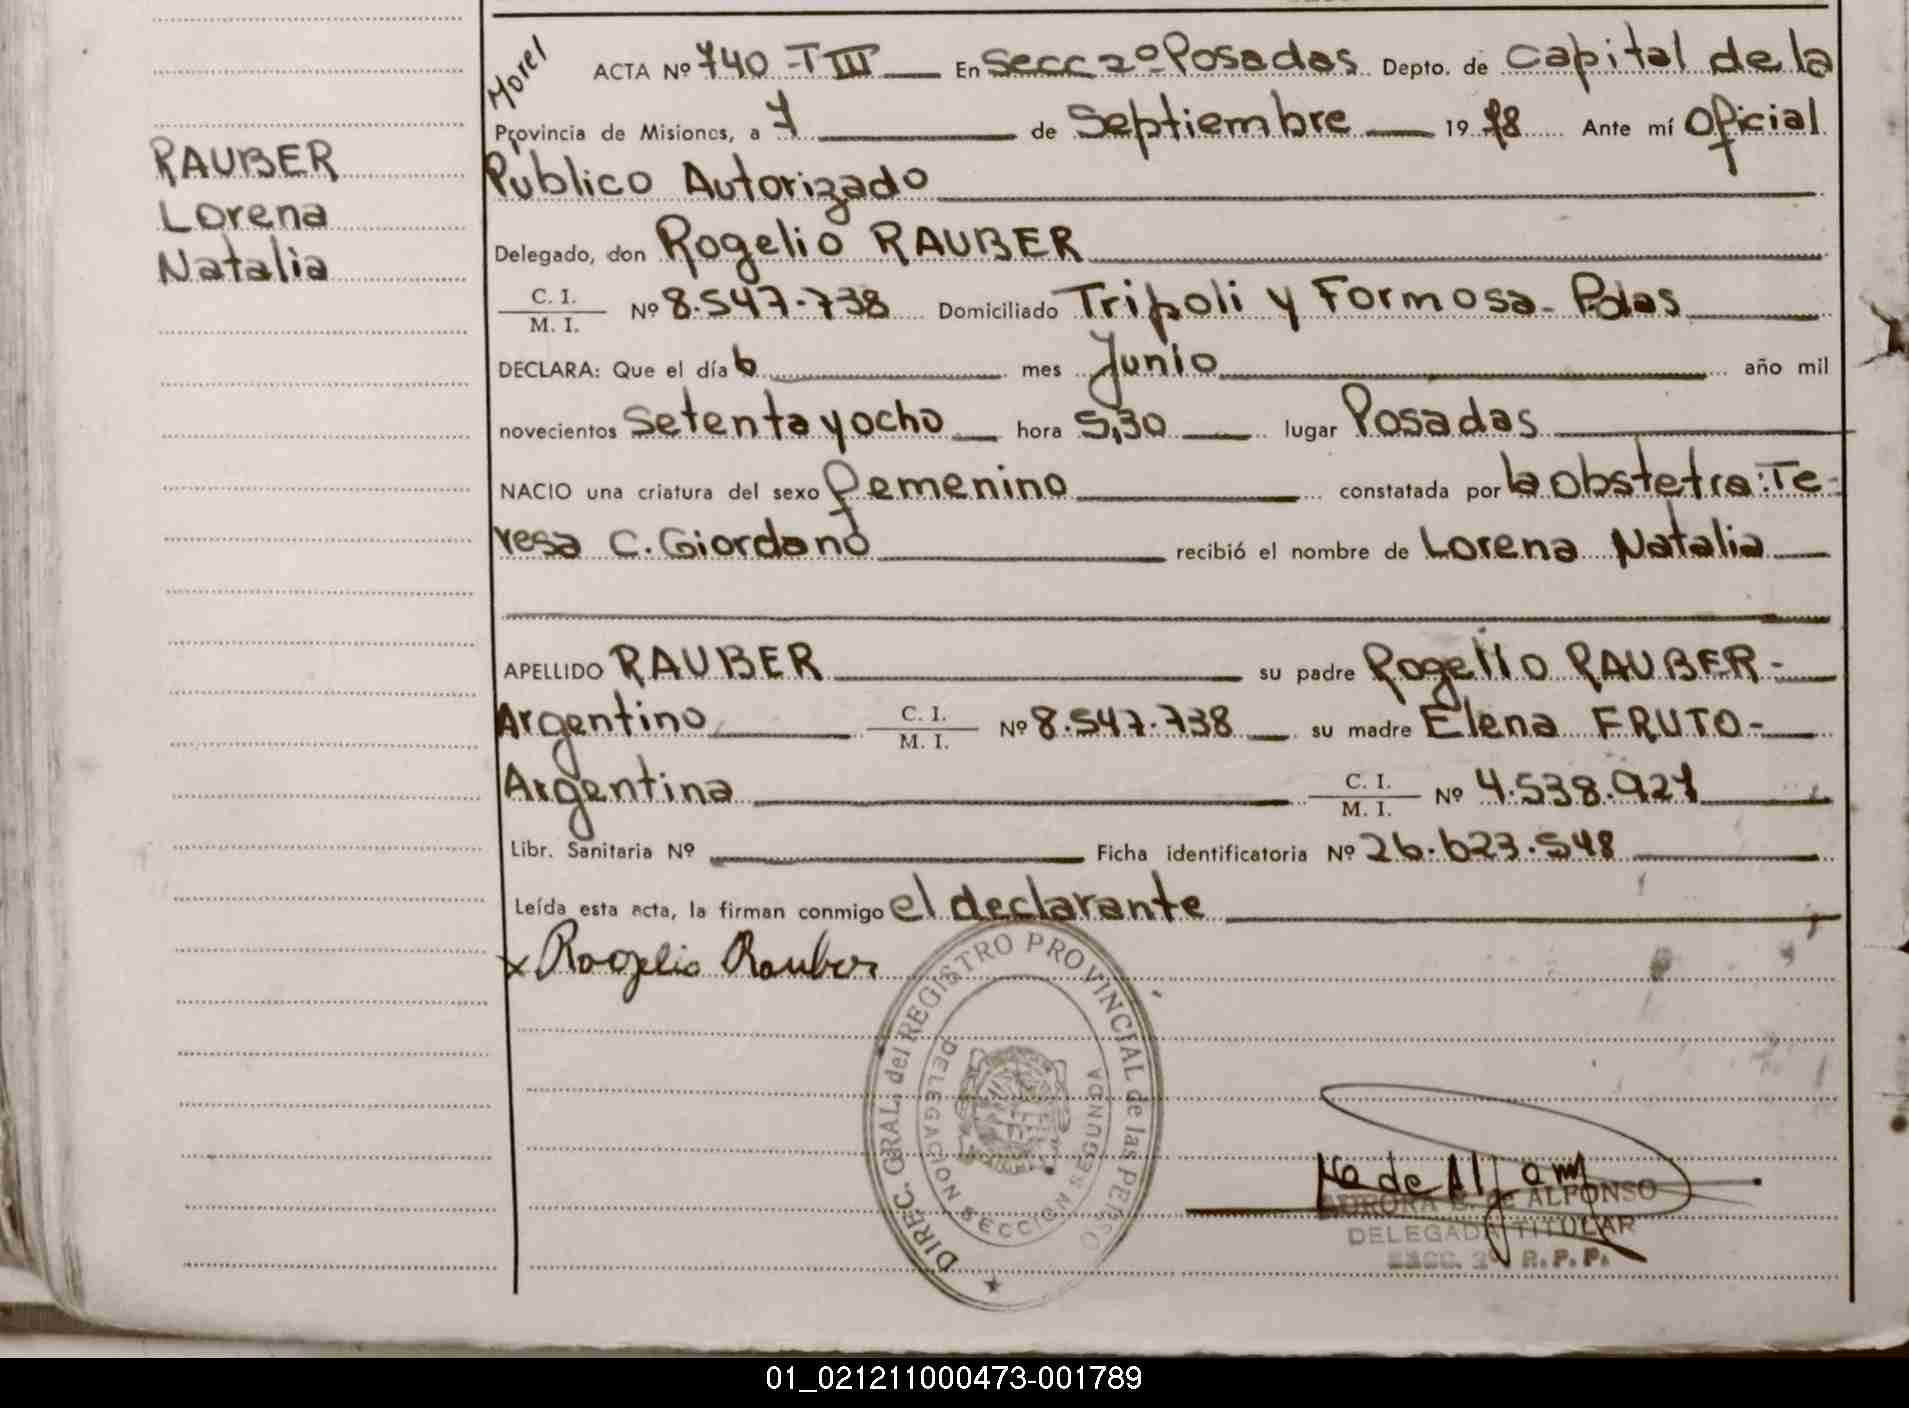 Morel
ACTA Nº 740-TIII En Secc 2º Posadas Depto. de Capital de la
Provincia de Misiones, a 7 de Septiembre 1978 Ante mí Oficial
Publico Autorizado
RAUBER
Lorena
Natalia
Delegado, don Rogelio RAUBER
C. I.
M. I. Nº 8.547.738 Domiciliado Tripoli y Formosa - Pdas
DECLARA: Que el día 6 mes Junio año mil
novecientos setenta y ocho hora 5,30 lugar Posadas
NACIO una criatura del sexo femenino constatada por la obstetra: Te-
resa C. Giordano recibió el nombre de Lorena Natalia
APELLIDO RAUBER su padre Rogelio RAUBER-
Argentino C. I.
M. I. Nº 8.547.738 su madre Elena FRUTO-
Argentina C. I.
M. I. Nº 4.538.927
Libr. Sanitaria Nº Ficha identificatoria Nº 26.623.548
Leída esta acta, la firman conmigo el declarante
x Rogelio Rauber
DIREC. GRAL. del REGISTRO PROVINCIAL de las PERSO
DELEGACION SECCION SEGUNDA
AURORA de ALFONSO
DELEGADA TITULAR
SECC. 2º R.P.P.
01_021211000473-001789